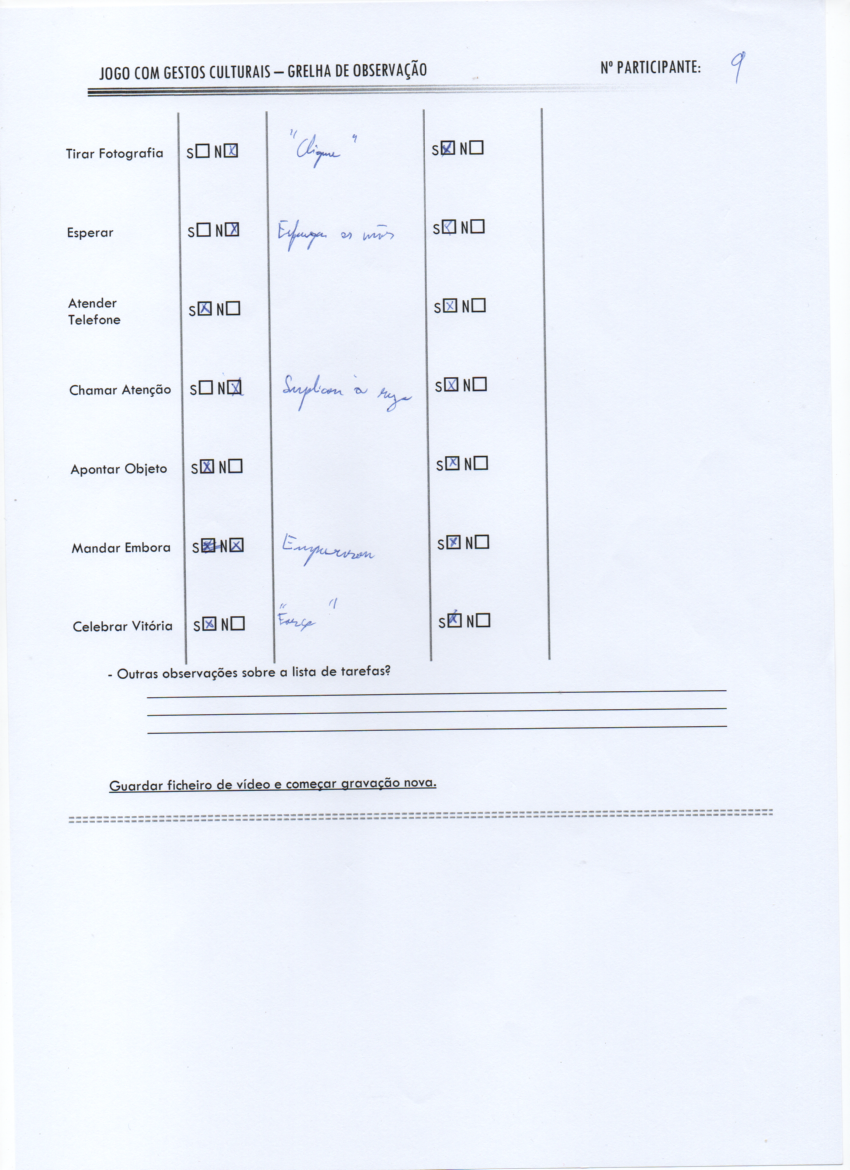 JOGO COM GESTOS CULTURAIS – GRELHA DE OBSERVAÇÃO Nº PARTICIPANTE: 9
Tirar Fotografia S☐ N☒ "Clique" S☒ N☐
Esperar S☐ N☒ as mãos S☒ N☐
Atender
Telefone S☒ N☐ S☒ N☐
Chamar Atenção S☐ N☒ à S☒ N☐
Apontar Objeto S☒ N☐ S☒ N☐
Mandar Embora S☒ N☒ Empurrou S☒ N☐
Celebrar Vitória S☒ N☐ "Força" S☒ N☐
- Outras observações sobre a lista de tarefas?
Guardar ficheiro de vídeo e começar gravação nova.